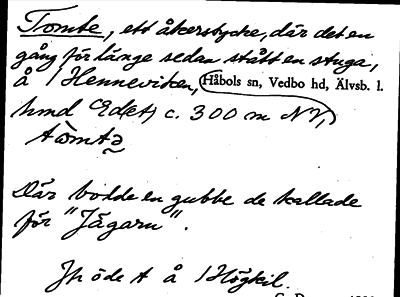 Tomte, ett åkerstycke, där det en
gång för länge sedan stått en stuga,
å Henneviken, Håbols sn, Vedbo hd, Älvsb. l.
hmd Ed(et) c. 300 m NV,
tòmtə
Där bodde en gubbe de kallade
för "Jägarn".
å Högkil.